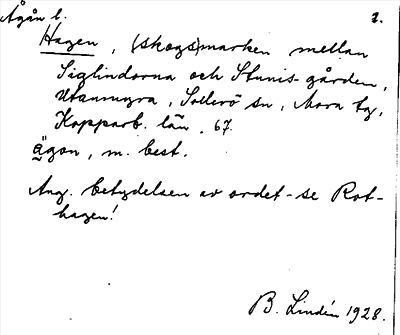 Ågån l. 1.
Hagen, (skogs)marken mellan
Siglindorna och Stunis-gården,
Utanmyra, Sollerö sn, Mora tg,
Kopparb. län, 67.
ägon, m. best.
Ang. betydelsen av ordet - se Rot-
hagen!
B. Lindén 1928.